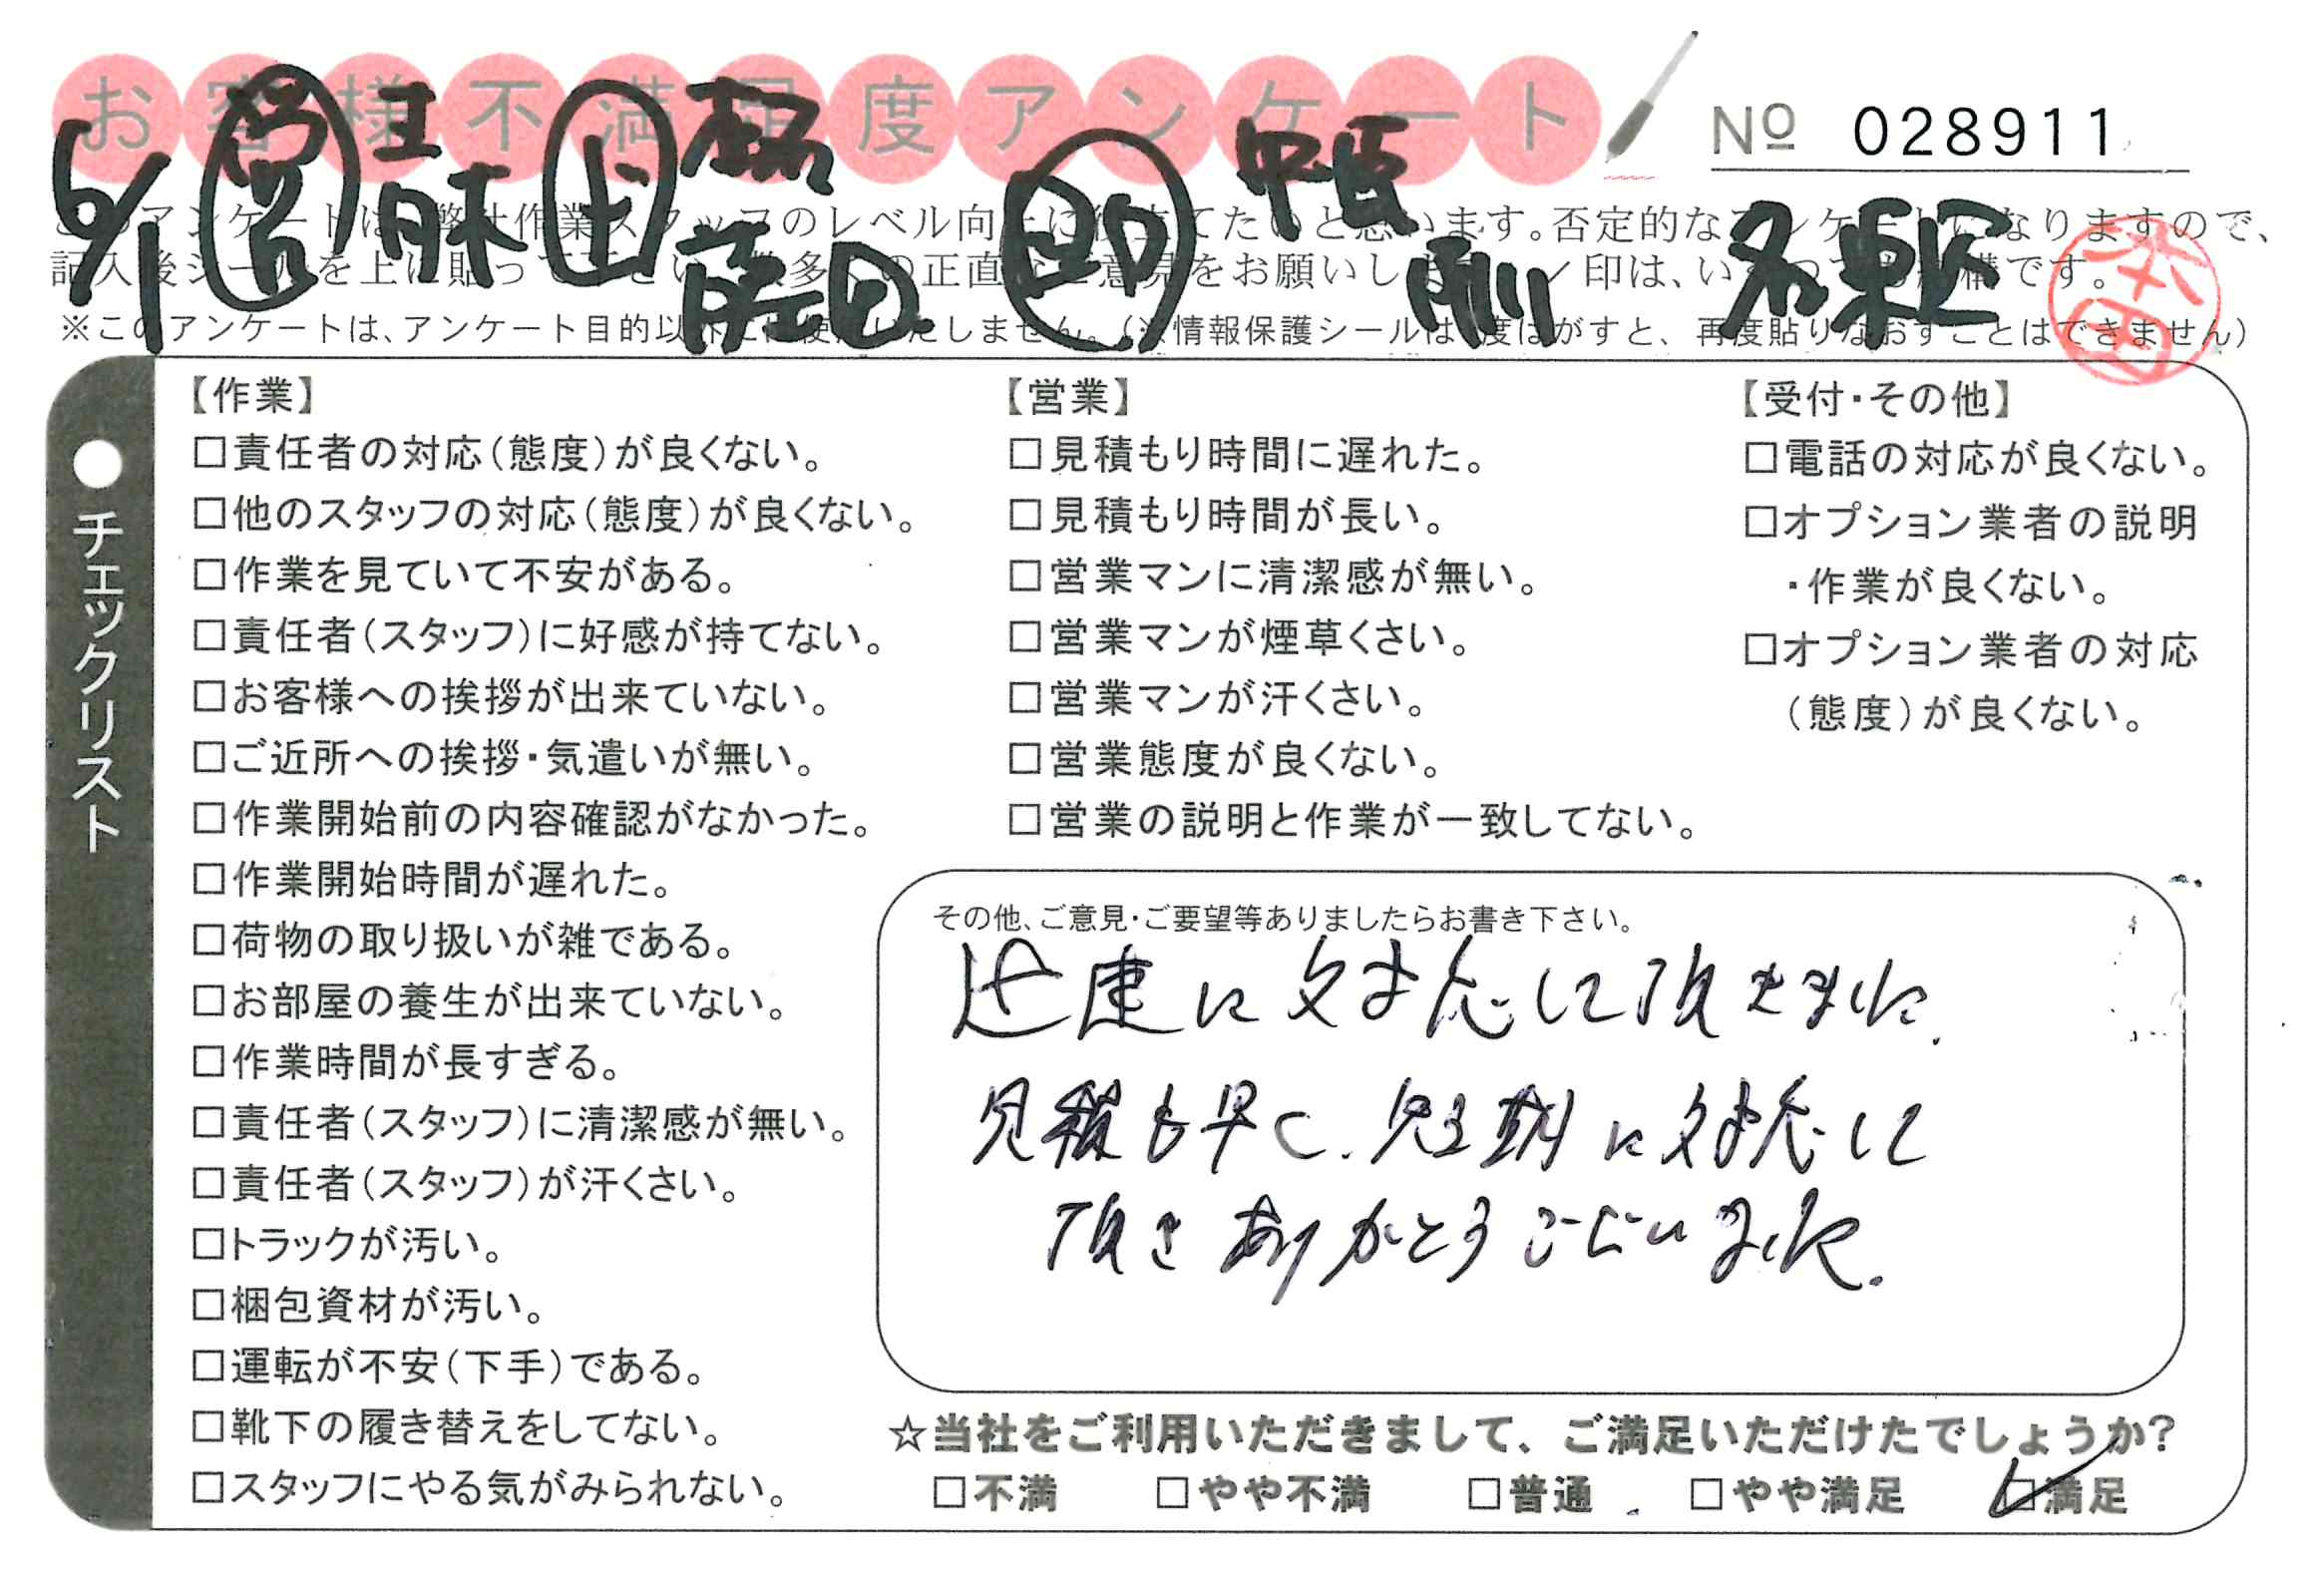 お客様不満足度アンケート
No 028911
6/1
このアンケートは、弊社作業スタッフのレベル向上に役立てたいと思います。否定的なアンケートになりますので、
※このアンケートは、アンケート目的以外には使用いたしません。(※情報保護シールは1度はがすと、再度貼りなおすことはできません)
本田
●チェックリスト
【作業】
□責任者の対応(態度)が良くない。
□他のスタッフの対応(態度)が良くない。
□作業を見ていて不安がある。
□責任者(スタッフ)に好感が持てない。
□お客様への挨拶が出来ていない。
□ご近所への挨拶・気遣いが無い。
□作業開始前の内容確認がなかった。
□作業開始時間が遅れた。
□荷物の取り扱いが雑である。
□お部屋の養生が出来ていない。
□作業時間が長すぎる。
□責任者(スタッフ)に清潔感が無い。
□責任者(スタッフ)が汗くさい。
□トラックが汚い。
□梱包資材が汚い。
□運転が不安(下手)である。
□靴下の履き替えをしてない。
□スタッフにやる気がみられない。
【営業】
□見積もり時間に遅れた。
□見積もり時間が長い。
□営業マンに清潔感が無い。
□営業マンが煙草くさい。
□営業マンが汗くさい。
□営業態度が良くない。
□営業の説明と作業が一致してない。
【受付・その他】
□電話の対応が良くない。
□オプション業者の説明
・作業が良くない。
□オプション業者の対応
(態度)が良くない。
その他、ご意見・ご要望等ありましたらお書き下さい。
迅速に対応して頂きました.
見積も早く、短期に対応して
頂きありがとうございました.
☆当社をご利用いただきまして、ご満足いただけたでしょうか?
□不満 □やや不満 □普通 □やや満足 ☑満足